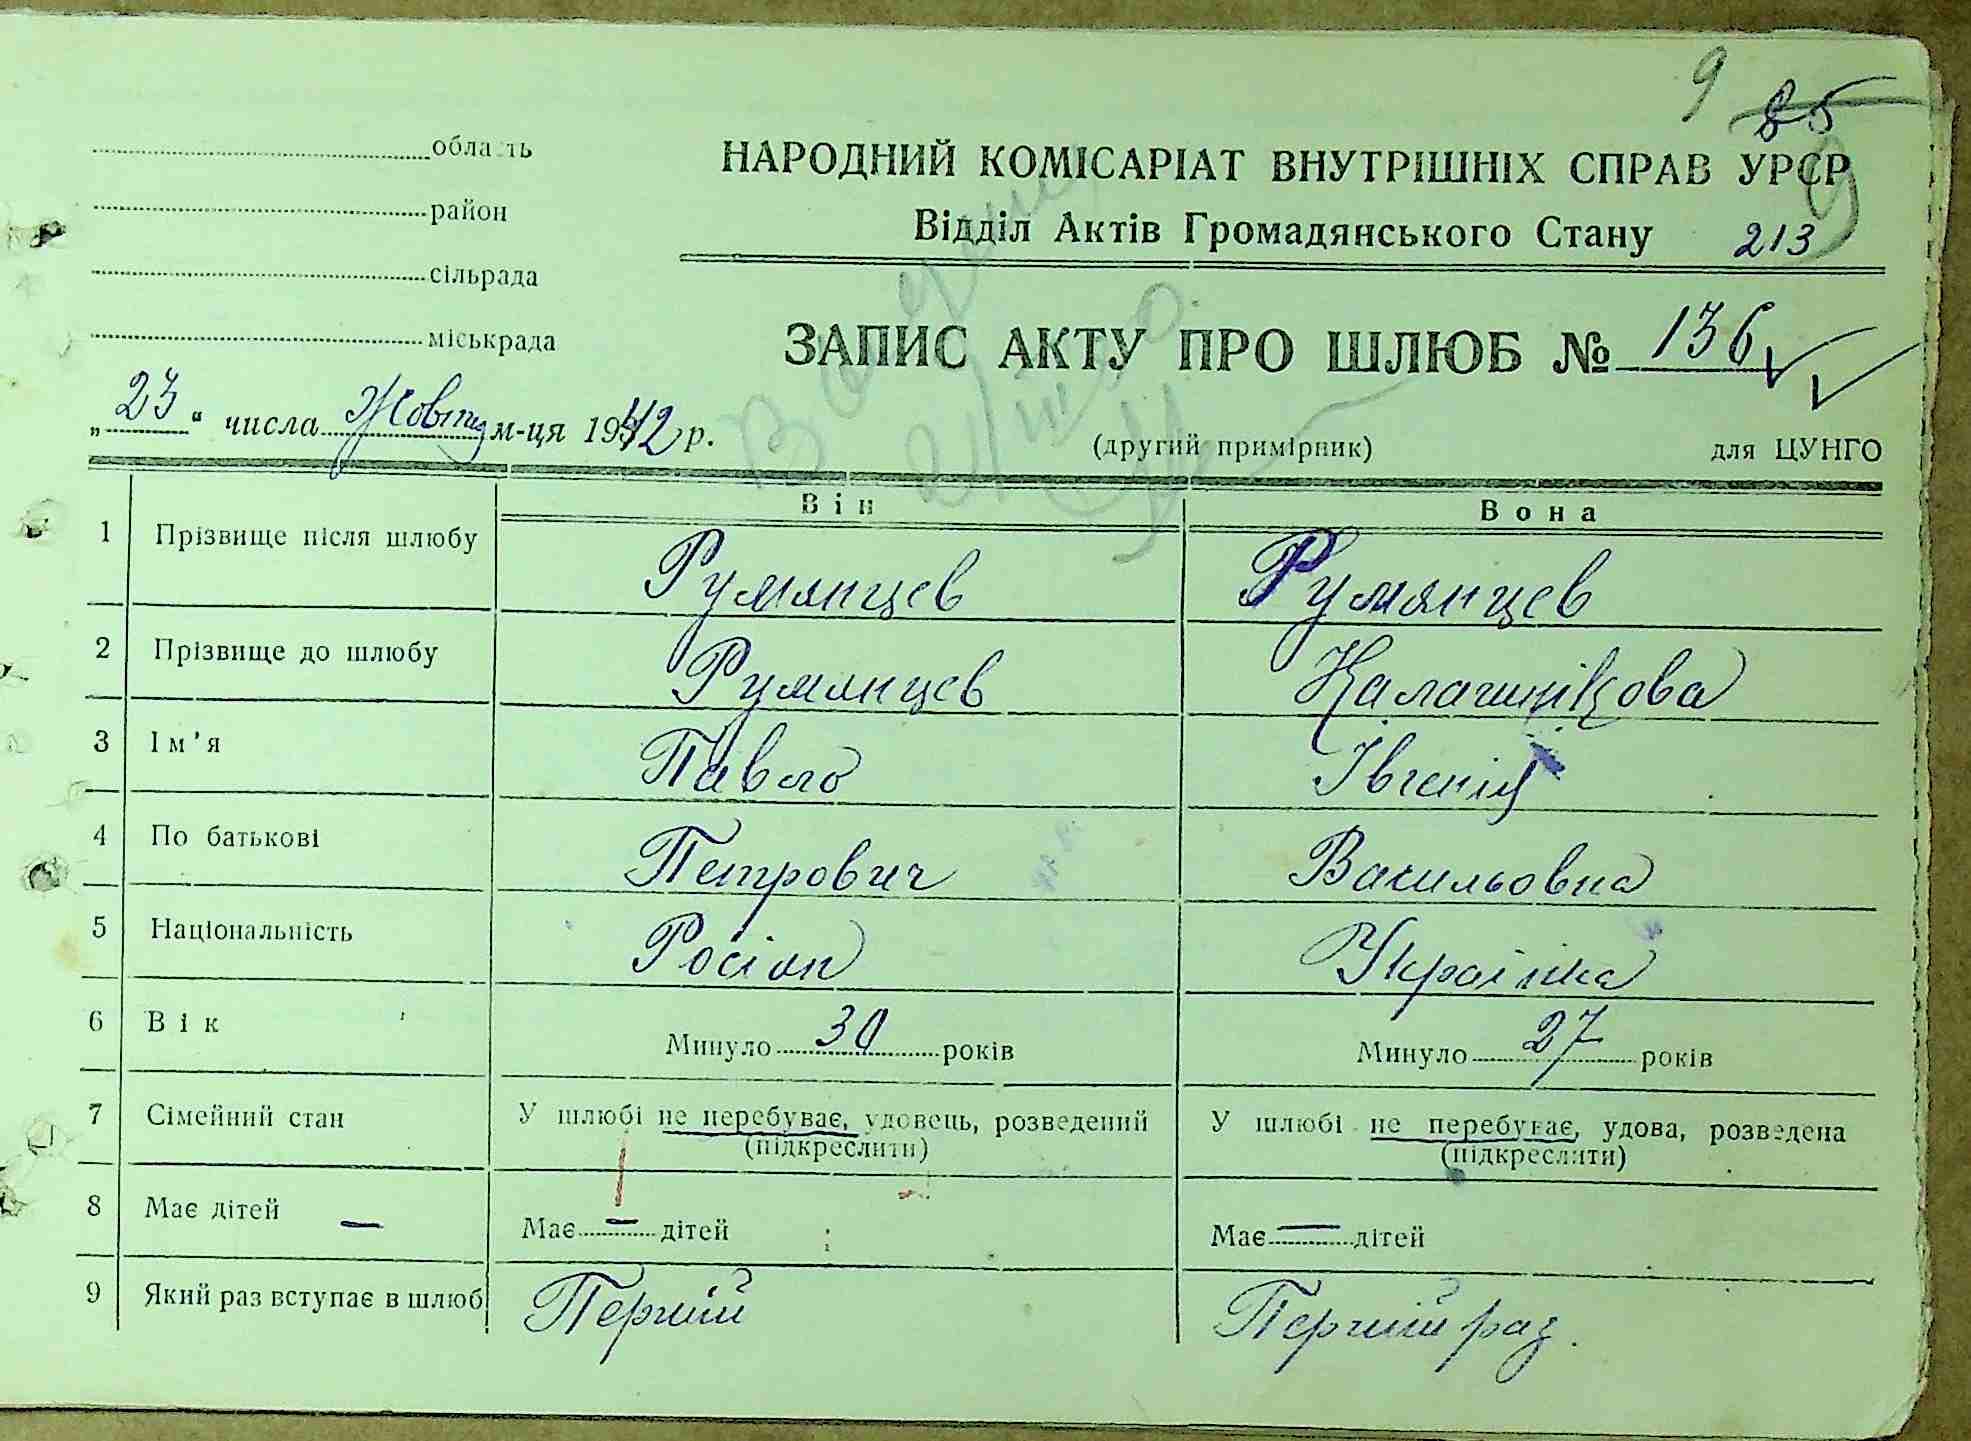 9 85
область
НАРОДНИЙ КОМІСАРІАТ ВНУТРІШНІХ СПРАВ УРСР
9
район
Відділ Актів Громадянського Стану 213
сільрада
міськрада
ЗАПИС АКТУ ПРО ШЛЮБ № 136
„23“ числа Жовтня м-ця 1942 р.
(другий примірник) для ЦУНГО
Він Вона
1 Прізвище після шлюбу Румянцев Румянцев
2 Прізвище до шлюбу Румянцев Калашнікова
3 Ім'я Павло Івгенія
4 По батькові Петрович Васильовна
5 Національність Росіян Українка
6 Вік Минуло 30 років Минуло 27 років
7 Сімейний стан У шлюбі не перебуває, удовець, розведений У шлюбі не перебуває, удова, розведена
(підкреслити) (підкреслити)
8 Має дітей — Має — дітей Має — дітей
9 Який раз вступає в шлюб Перший Перший раз.